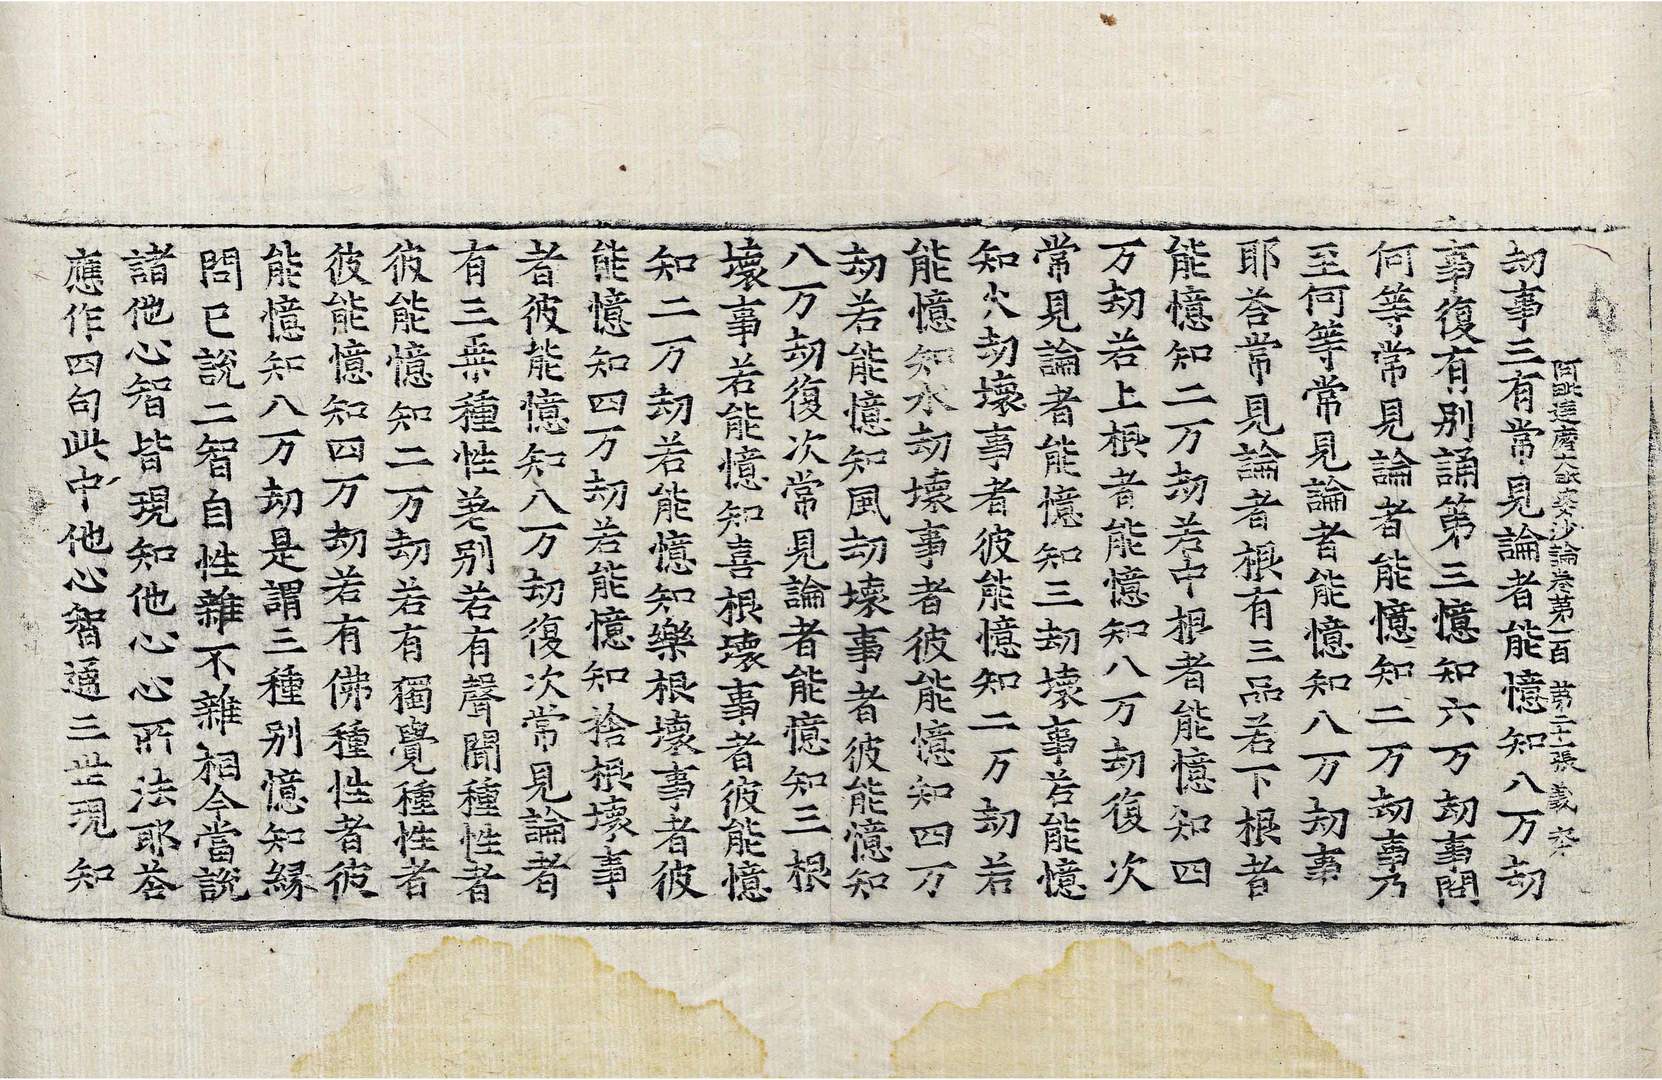 阿毗達磨大毗婆沙論卷第一百　第二十一張　義
劫事三有常見論者能憶知八万劫
事復有別誦第三憶知六万劫事問
何等常見論者能憶知二万劫事乃
至何等常見論者能憶知八万劫事
耶荅常見論者根有三品若下根者
能憶知二万劫若中根者能憶知四
万劫若上根者能憶知八万劫復次
常見論者能憶知三劫壞事若能憶
知火劫壞事者彼能憶知二万劫若
能憶知水劫壞事者彼能憶知四万
劫若能憶知風劫壞事者彼能憶知
八万劫復次常見論者能憶知三根
壞事若能憶知喜根壞事者彼能憶
知二万劫若能憶知樂根壞事者彼
能憶知四万劫若能憶知捨根壞事
者彼能憶知八万劫復次常見論者
有三乗種性差別若有聲聞種性者
彼能憶知二万劫若有獨覺種性者
彼能憶知四万劫若有佛種性者彼
能憶知八万劫是謂三種別憶知緣
問已說二智自性雜不雜相今當說
諸他心智皆現知他心心所法耶荅
應作四句此中他心智通三世現知